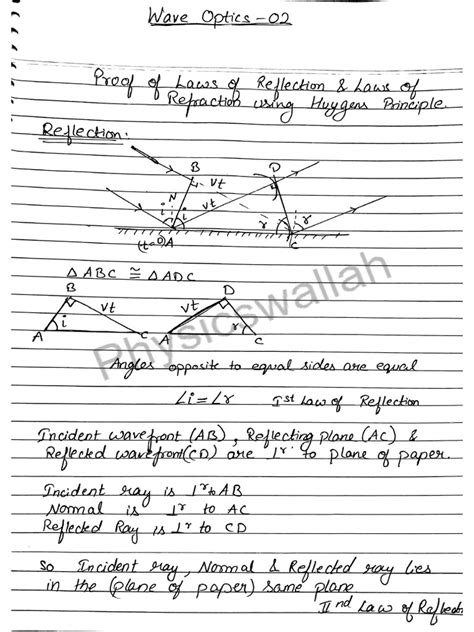 Wave Optics - 02
Proof of Laws of Reflection & Laws of
Refraction using Huygens Principle
Reflection:
B
D
N
vt
vt
i
i
r
r
(t=0)A
C
△ABC ≅ △ADC
B
D
vt
vt
A
i
C
A
r
C
Physicswallah
Angles opposite to equal sides are equal
∠i = ∠r Ist Law of Reflection
Incident wavefront (AB), Reflecting plane (AC) &
Reflected wavefront (CD) are ⊥r to plane of paper.
Incident ray is ⊥r to AB
Normal is ⊥r to AC
Reflected Ray is ⊥r to CD
So Incident ray, Normal & Reflected ray lies
in the (plane of paper) same plane
IInd Law of Reflectn